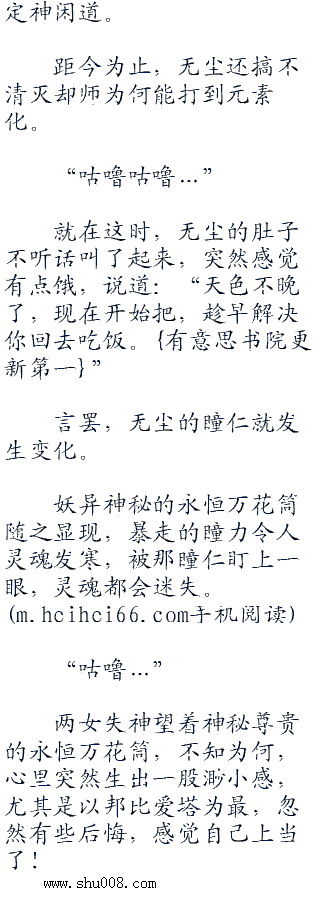 定神闲道。
距今为止，无尘还搞不
清灭却师为何能打到元素
化。
“咕噜咕噜…”
就在这时，无尘的肚子
不听话叫了起来，突然感觉
有点饿，说道：“天色不晚
了，现在开始把，趁早解决
你回去吃饭。{有意思书院更
新第一}”
言罢，无尘的瞳仁就发
生变化。
妖异神秘的永恒万花筒
随之显现，暴走的瞳力令人
灵魂发寒，被那瞳仁盯上一
眼，灵魂都会迷失。
(m.hcihci66.com手机阅读)
“咕噜…”
两女失神望着神秘尊贵
的永恒万花筒，不知为何，
心里突然生出一股渺小感，
尤其是以邦比爱塔为最，忽
然有些后悔，感觉自己上当
了！
www.shu008.com